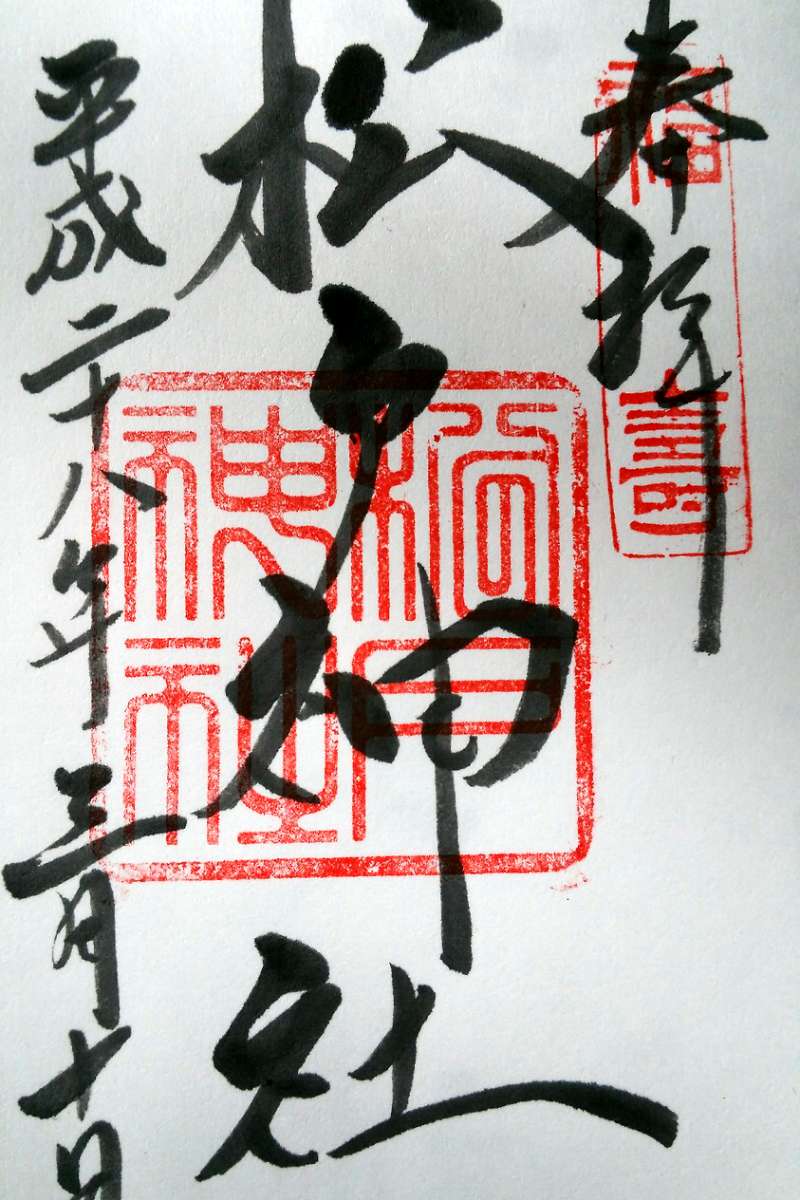 奉拝
福寿
松戸神社
松戸神社
平成二十八年三月十日